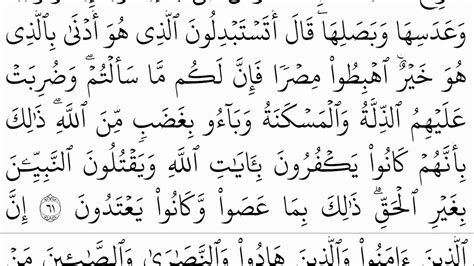 وَعَدَسِهَا وَبَصَلِهَا ۖ قَالَ أَتَسْتَبْدِلُونَ ٱلَّذِى هُوَ أَدْنَىٰ بِٱلَّذِى
هُوَ خَيْرٌ ۚ ٱهْبِطُوا۟ مِصْرًا فَإِنَّ لَكُم مَّا سَأَلْتُمْ ۗ وَضُرِبَتْ
عَلَيْهِمُ ٱلذِّلَّةُ وَٱلْمَسْكَنَةُ وَبَآءُو بِغَضَبٍ مِّنَ ٱللَّهِ ۗ ذَٰلِكَ
بِأَنَّهُمْ كَانُوا۟ يَكْفُرُونَ بِـَٔايَـٰتِ ٱللَّهِ وَيَقْتُلُونَ ٱلنَّبِيِّـۧنَ
بِغَيْرِ ٱلْحَقِّ ۗ ذَٰلِكَ بِمَا عَصَوا۟ وَّكَانُوا۟ يَعْتَدُونَ ٦١ إِنَّ
ٱلَّذِينَ ءَامَنُوا۟ وَٱلَّذِينَ هَادُوا۟ وَٱلنَّصَـٰرَىٰ وَٱلصَّـٰبِـِٔينَ مَنْ